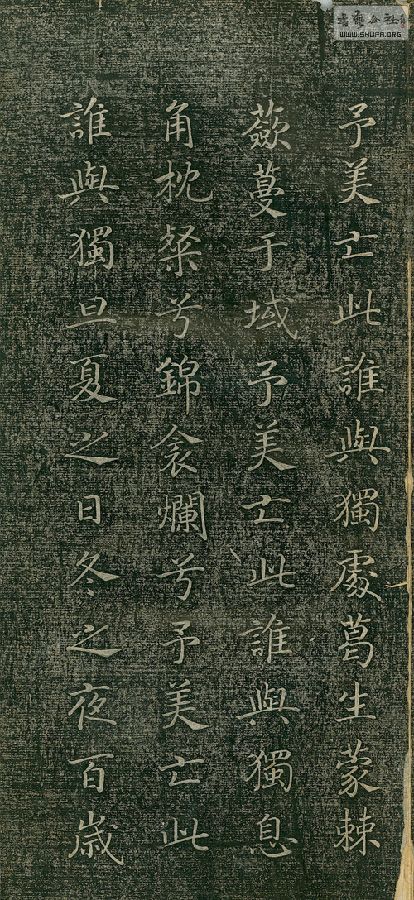 予美亡此誰與獨處葛生蒙棘
蘞蔓于域予美亡此誰與獨息
角枕粲兮錦衾爛兮予美亡此
誰與獨旦夏之日冬之夜百歲
WWW.SHUFA.ORG